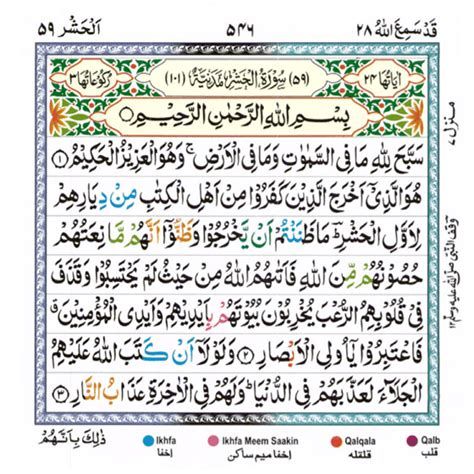 قَدْ سَمِعَ اللّٰهُ ٢٨ ٥٤٦ اَلْحَشْر ٥٩
اٰيَاتُهَا ٢٤ (٥٩) سُوْرَةُ الْحَشْرِ مَدَنِيَّةٌ (١٠١) رُكُوْعَاتُهَا ٣
بِسْمِ اللّٰهِ الرَّحْمٰنِ الرَّحِيْمِ
سَبَّحَ لِلّٰهِ مَا فِى السَّمٰوٰتِ وَمَا فِى الْاَرْضِ ۚ وَهُوَ الْعَزِيْزُ الْحَكِيْمُ ١
هُوَ الَّذِىْۤ اَخْرَجَ الَّذِيْنَ كَفَرُوْا مِنْ اَهْلِ الْكِتٰبِ مِنْ دِيَارِهِمْ
لِاَوَّلِ الْحَشْرِ ؕ مَا ظَنَنْتُمْ اَنْ يَّخْرُجُوْا وَظَنُّوْۤا اَنَّهُمْ مَّا نِعَتُهُمْ
حُصُوْنُهُمْ مِّنَ اللّٰهِ فَاَتٰىهُمُ اللّٰهُ مِنْ حَيْثُ لَمْ يَحْتَسِبُوْا وَقَذَفَ
فِىْ قُلُوْبِهِمُ الرُّعْبَ يُخْرِبُوْنَ بُيُوْتَهُمْ بِاَيْدِيْهِمْ وَاَيْدِى الْمُؤْمِنِيْنَ ۗ
فَاعْتَبِرُوْا يٰۤاُولِى الْاَبْصَارِ ٢ وَلَوْلَاۤ اَنْ كَتَبَ اللّٰهُ عَلَيْهِمُ
الْجَلَآءَ لَعَذَّبَهُمْ فِى الدُّنْيَا ؕ وَلَهُمْ فِى الْاٰخِرَةِ عَذَابُ النَّارِ ٣
ذٰلِكَ بِاَنَّهُمْ
منزل ٧
وقف النبى صلى الله عليه وسلم ١٢
Ikhfa Ikhfa Meem Saakin Qalqala Qalb
اخفا اخفا میم ساکن قلقله قلب